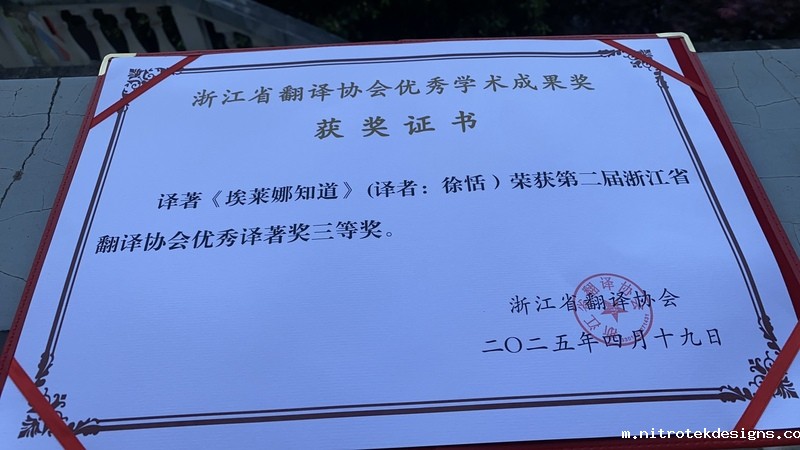 浙江省翻译协会优秀学术成果奖
获奖证书
译著《埃莱娜知道》(译者：徐恬）荣获第二届浙江省
翻译协会优秀译著奖三等奖。
浙江省翻译协会
二〇二五年四月十九日
m.nitrotekdesigns.co